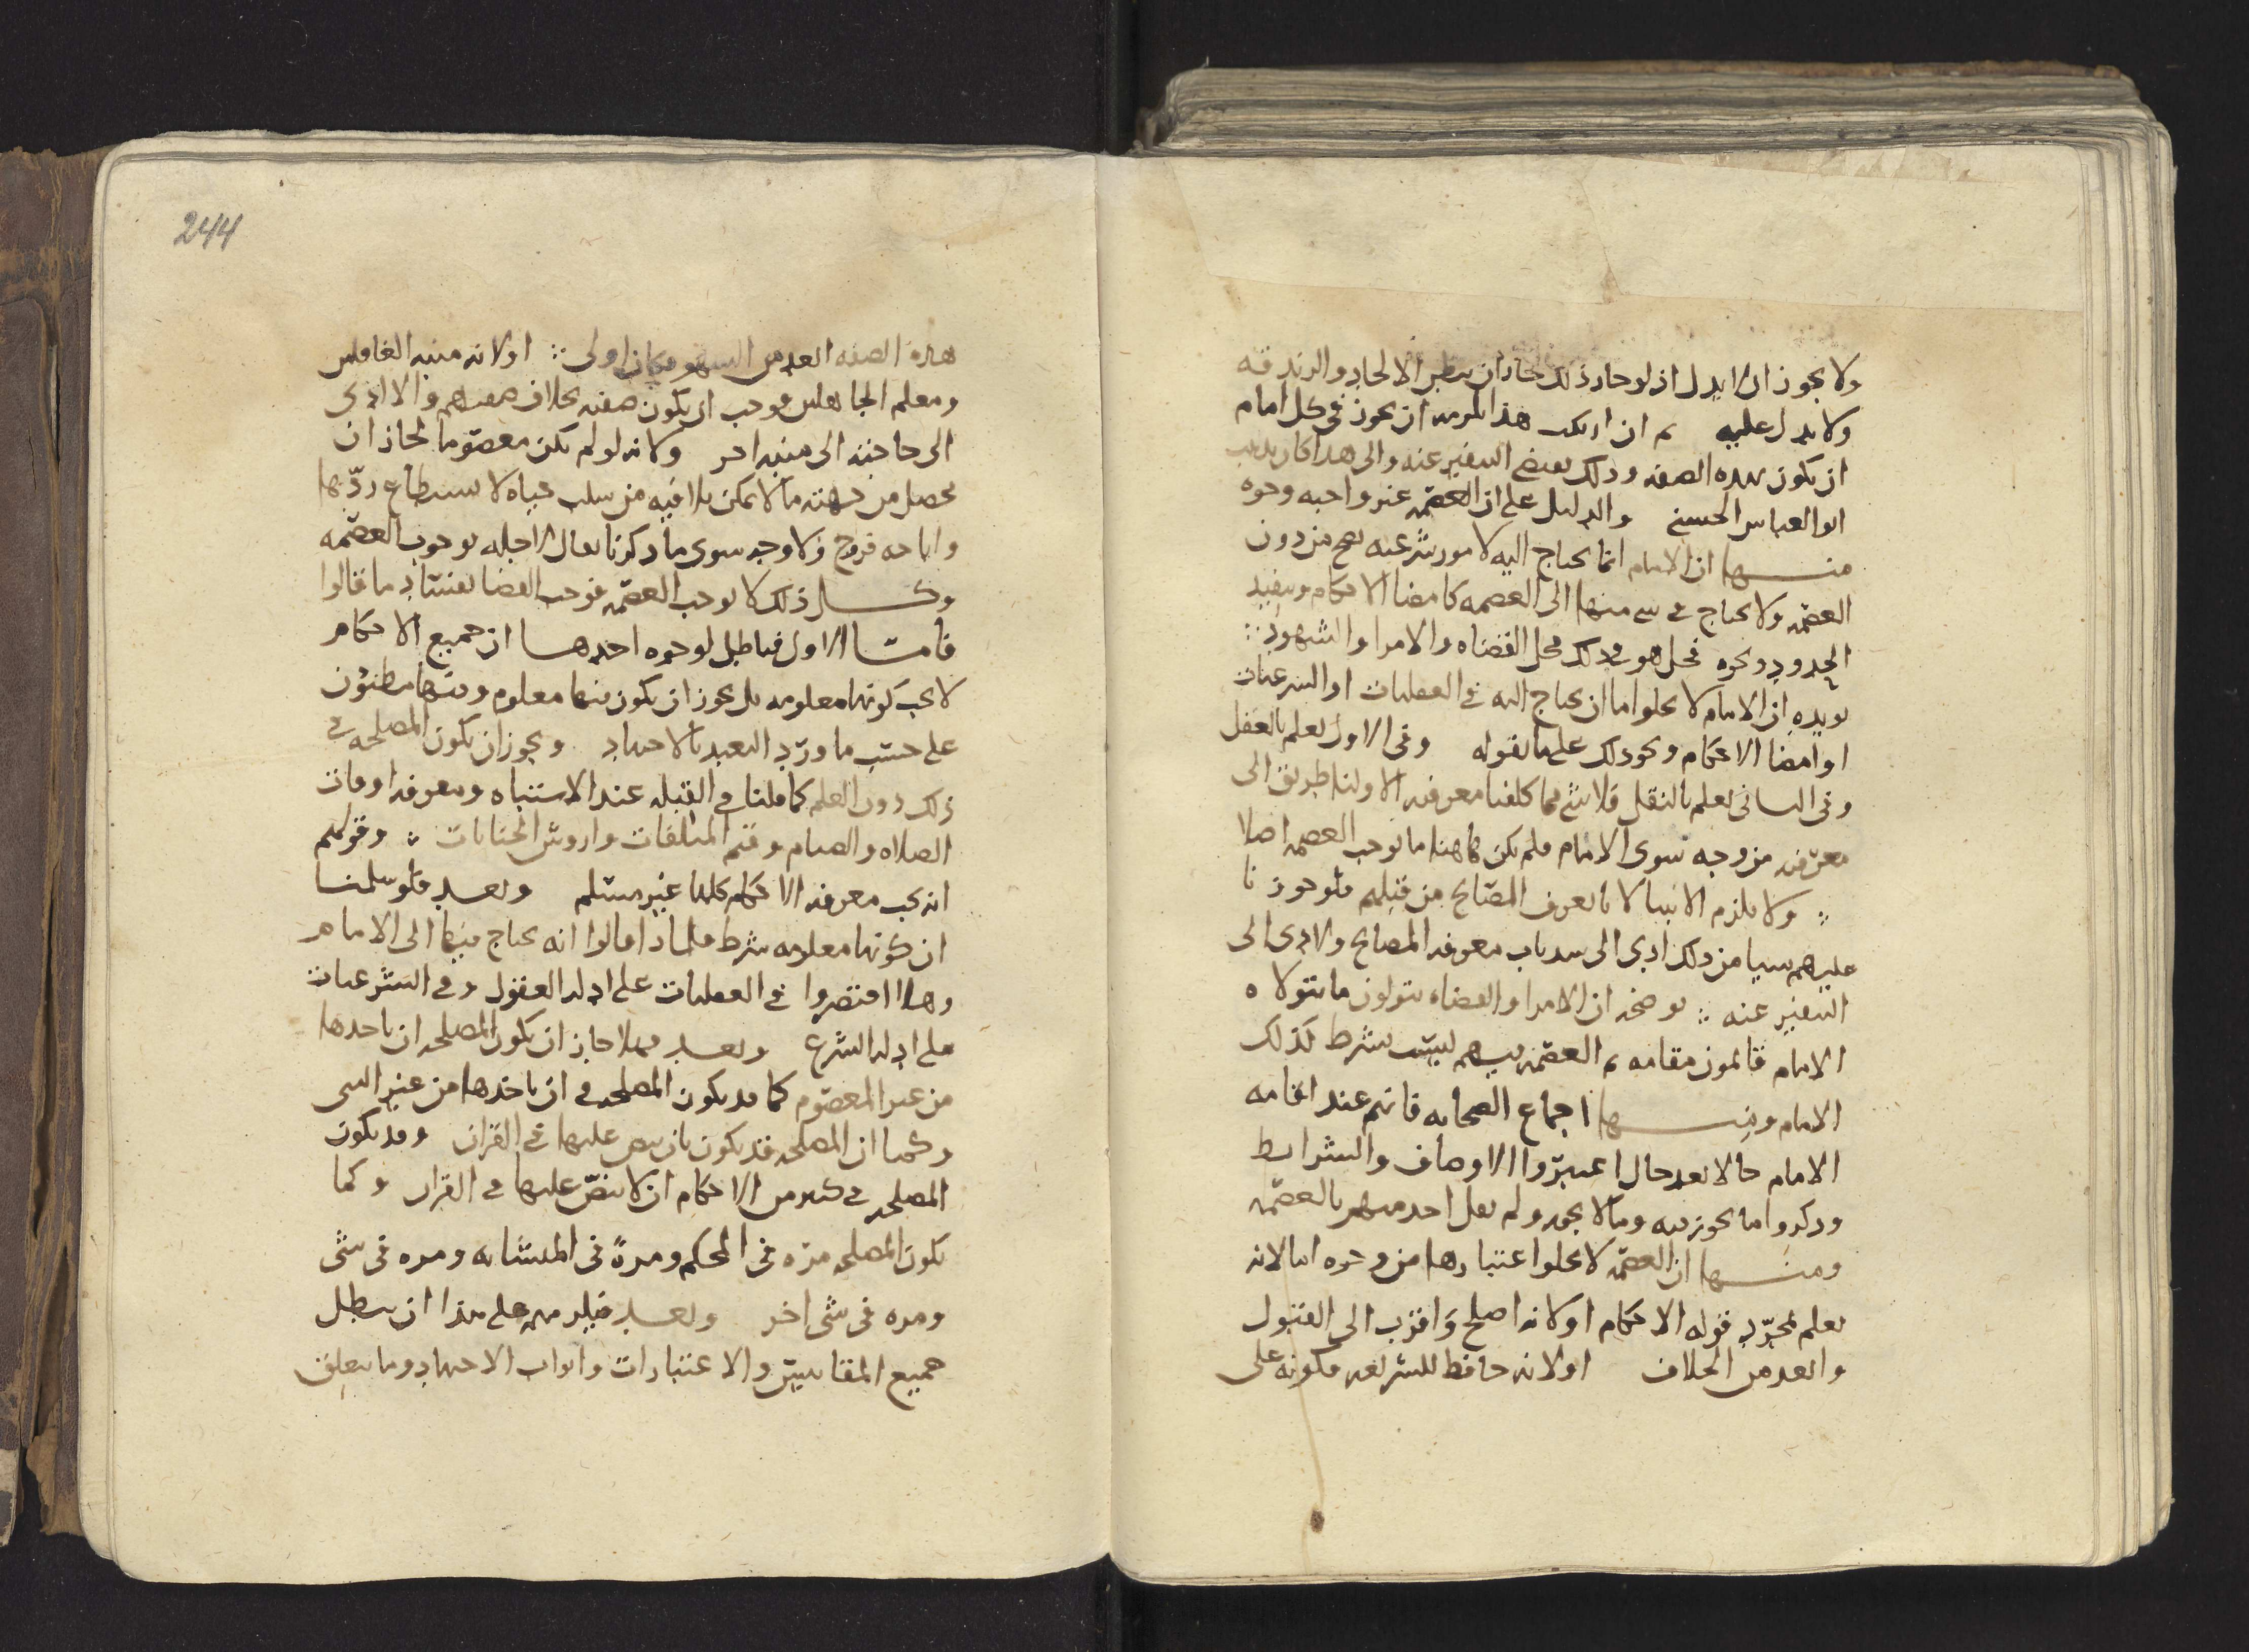 ولا يجوز ان لا يدل اذ لو جاز ذلك لجاز ان يبطن الالحاد والزندقه
ولا يدل عليه ثم ان ارتكب هذا لزمه ان يجوز في كل امام
ان يكون بهذه الصفه وذلك يقتضي التنفير عنه والى هذا كان يذهب
ابو العباس الحسني والدليل على ان العصمه غير واجبه وجوه
منها ان الامام انما يحتاج اليه لامور شرعيه تصح من دون
العصمه ولا يحتاج في شي منها الى العصمه كامضا الاحكام وتنفيذ
الحدود ونحوه فحل هو في ذلك محل القضاه والامرا والشهود
يويده ان الامام لا يخلوا اما ان يحتاج اليه في العقليات او الشرعيات
او امضا الاحكام ونحو ذلك على ما نقوله وفي الاول نعلم بالعقل
وفي الثاني نعلم بالنقل فلا شي مما كلفنا معرفته الا ولنا طريق الى
معرفته من وجه سوى الامام فلم يكن هاهنا ما يوجب العصمه اصلا
ولا يلزم الانبيا لانا نعرف المصالح من قبلهم فلو جوزنا
عليهم شيا من ذلك ادى الى سد باب معرفه المصالح ولادى الى
التنفير عنه يوضحه ان الامرا والقضاه يتولون ما يتولاه
الامام قائمون مقامه ثم العصمه فيهم ليست بشرط كذلك
الامام ومنها اجماع الصحابه فانهم عند اقامه
الامام حالا بعد حال اعتبروا الاوصاف والشرايط
وذكروا ما يجوز فيه وما لا يجوز ولم يقل احد منهم بالعصمه
ومنها ان العصمه لا يخلوا اعتبارها من وجوه اما لانه
يعلم بمجرد قوله الاحكام او لانه اصلح واقرب الى القبول
وابعد من الخلاف او لانه حافظ للشريعه فكونه على
244
هذه الصفه ابعد من السهو فكان اولى او لانه منبه الغافلين
ومعلم الجاهلين فوجب ان يكون صفته بخلاف صفتهم والا ادى
الى حاجته الى منبه اخر ولانه لو لم يكن معصوما لجاز ان
يحصل من جهته ما لا يمكن تلافيه من سلب حياه لا يستطاع ردها
واباحه فروج ولا وجه سوى ما ذكرنا يقال لاجله بوجوب العصمه
وكل ذلك لا يوجب العصمه فوجب القضا بفساد ما قالوا
فاما الاول فباطل لوجوه احدها ان جميع الاحكام
لا يجب كونها معلومه بل يجوز ان يكون منها معلوم ومنها مظنون
على حسب ما ورد التعبد بالاجتهاد ويجوز ان يكون المصلحه في
ذلك دون العلم كما قلنا في القبله عند الاشتباه ومعرفه اوقات
الصلاه والصيام وقيم المتلفات واروش الجنايات وقولهم
انه يجب معرفه الاحكام كلها غير مسلم وبعد فلو سلمنا
ان كونها معلومه شرط فلماذا قالوا انه يحتاج فيها الى الامام
وهلا اقتصروا في العقليات على ادله العقول وفي الشرعيات
على ادله الشرع وبعد فهلا جاز ان يكون المصلحه ان ناخذها
من غير المعصوم كما قد يكون المصلحه في ان ناخذها من غير النبي
وكما ان المصلحه قد يكون بان ينص عليها في القران وقد يكون
المصلحه في كثير من الاحكام ان لا ينص عليها في القران وكما
يكون المصلحه مره في المحكم ومرة في المتشابه ومره في شي
ومره في شي اخر وبعد فيلزمهم على هذا ان يبطل
جميع المقاييس والاعتبارات وابواب الاجتهاد وما يتعلق